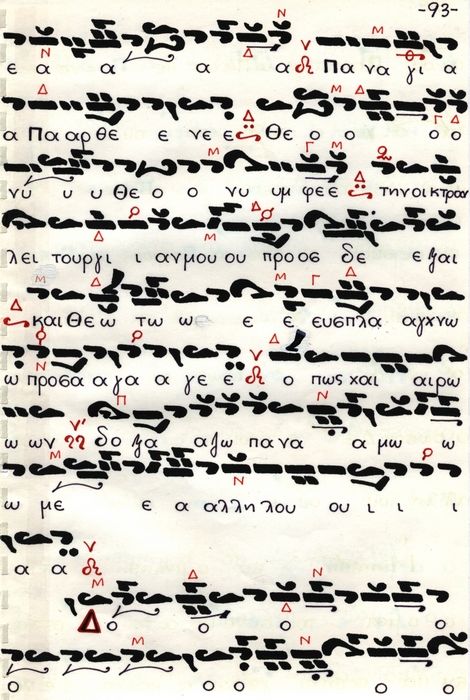 -93-
ε α α α α Πα να γι α
α Πα αρ θε ε νε ε Θε ο ο ο ο
νυ υ υ Θε ο ο νυ υμ φε ε τηνοικτραν
λει τουργι ι αν μου ου προ οσ δε ε ξαι
και Θε ω τω ω ε ε ευσπλα αγχνω
ω προσα α γα α γε ε ο πως χαι αιρω
ω ων δο ξα αζω πα να α μω ω
ω με ε α αλληλου ου ι ι ι
α α
Δ ο ο ο ο ο
ο ο ο ο ο